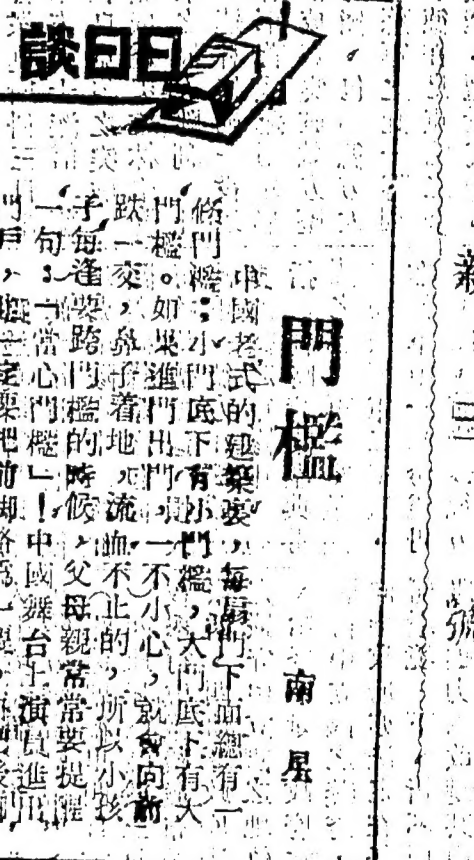 日日談
門檻
南星
中國老式的建築裏，每扇門下面總有一
條門檻；小門底下有小門檻，大門底下有大
門檻。如果進門出門，一不小心，就會向前
跌一交，鼻子着地，流血不止的，所以小孩
子每逢要跨門檻的時候，父母親常常要提醒
一句：「當心門檻」！中國舞台上演員進出
門戶，一定要把前脚
號